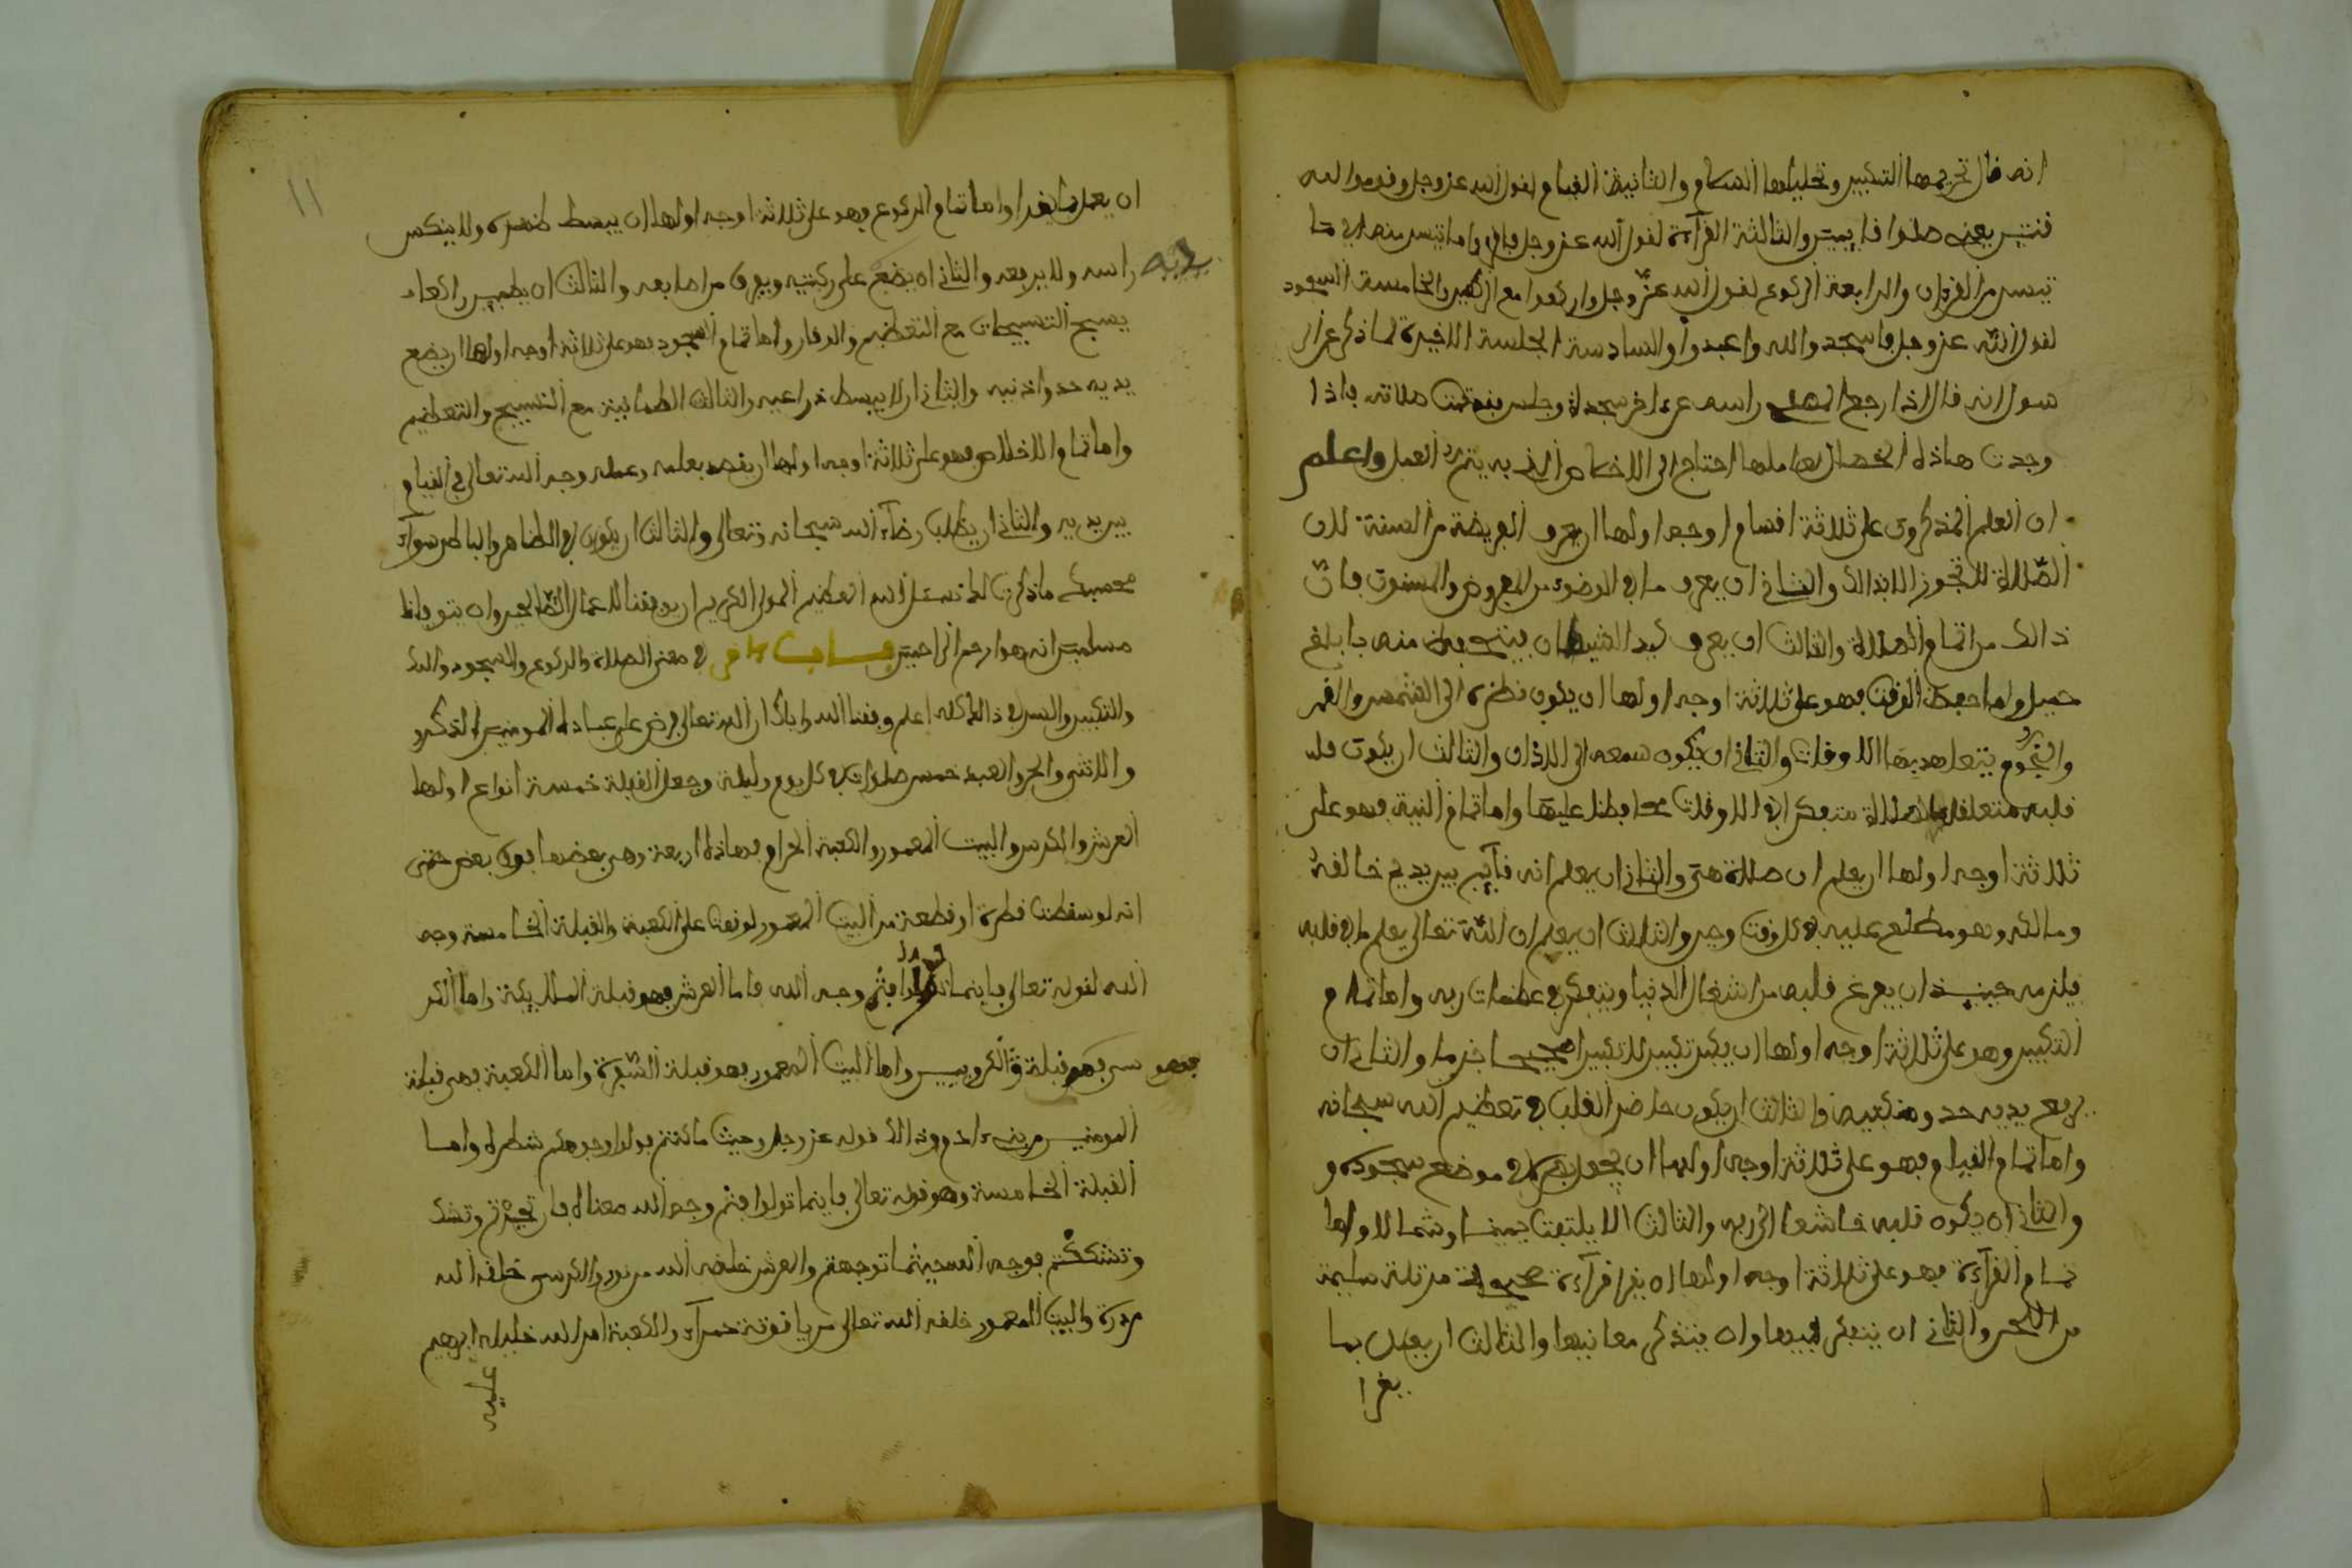 انه قال تحريمها التكبير وتحليلها السلام والثانية القيام لقول الله عز وجل وقوموا لله
قنتين يعني صلوا قايمين والثالثة القرآءة لقول الله عز وجل فاقرءوا ما تيسر منه اي ما
تيسر من القرءان والرابعة الركوع لقول الله عز وجل واركعوا مع الركعين والخامسة السجود
لقول الله عز وجل فاسجدوا لله واعبدوا والسادسة الجلسة الاخيرة لما ذكر عن
انه قال اذا رجع راسه من اخر سجدة وجلس فقد تمت صلاته فاذا
وجدت هاذه الخصال بعاملها احتاج الى الاخلاص الذي به يتم العمل واعلم
ان العلم المذكور على ثلاثة اقسام اوجه اولها ان يعرف الفريضة من السنة لان
الصلاة لا تجوز الا بذالك والثاني ان يعرف ما في الوضوء من الفروض والسنون فان
ذالك من اتمام الصلاة والثالث ان يعرف كيد الشيطان منه بابلغ
حيل واما حفظ الوقت فهو على ثلاثة اوجه اولها ان يكون نظره الى الشمس والقمر
والنجوم يتعاهد بها الاوقات والثاني ان يكون سمعه الى الاذان والثالث ان يكون قلبه
قلبه متعلقا بالصلاة متفكرا في الاوقات محافظا عليها واما تمام النية فهو على
ثلاثة اوجه اولها ان يعلم ان صلاة هي والثاني ان يعلم انه قآيم بين يدي خالقه
ومالكه وهو مطلع عليه في كل وقت وحين والثالث ان يعلم ان الله تعالى يعلم ما في قلبه
فيلزمه حينيذ ان يفرغ قلبه من اشغال الدنيا ويتفكر في عظمات ربه واما تمام
التكبير وهو على ثلاثة اوجه اولها ان يكبر تكبير للتكبيرا صحيحا جزما والثاني ان
يرفع يديه حدو منكبيه والثالث ان يكون حاضر القلب في تعظيم الله سبحانه
واما تمام القيام فهو على ثلاثة اوجه اولها ان يجعل بصره في موضع سجوده و
والثاني ان يكون قلبه خاشعا الى ربه والثالث الا يلتفت يمينا وشمالا واما
تمام القرآءة فهو على ثلاثة اوجه اولها ان يقرا قرآءة صحيحة مرتلة سليمة
من اللحن والثاني ان يتفكر فيها وان يتذكر معانيها والثالث ان يعمل بما
يقرا
١١
ان يعمل بما يقرا واما تمام الركوع فهو على ثلاثة اوجه اولها ان يبسط ظهره ولا ينكس
راسه ولا يرفعه والثاني ان يضع يديه على ركبتيه ويفرق من اصابعه والثالث ان يطمين راكعا و
يسبح التسبيحات مع التعظيم والوقار واما تمام السجود فهو على ثلاثة اوجه اولها ان يضع
يديه حدو اذنيه والثاني ان لا يبسط ذراعيه والثالث الطمانينة مع التسبيح والتعظيم
واما تمام الاخلاص فهو على ثلاثة اوجه اولها ان يقصد بعلمه وعمله وجه الله تعالى في القيام
بين يديه والثاني ان يطلب رضآء الله سبحانه وتعالى والثالث ان يكون في الظاهر والباطن سوآء
ما ذكرت لك نسئل الله العظيم المولى الكريم ان يوفقنا للاعمال الصالحين وان يتوفانا
مسلمين انه هو ارحم الراحمين في معنى الصلاة والركوع والسجود وذالك
والتكبير والسر في ذالك كله اعلم وفقنا الله واياك ان الله تعالى فرض على عباده المومنين الذكر
والانثى والحر والعبد خمس صلوات في كل يوم وليلة وجعل القبلة خمسة انواع اولها
العرش والكرسي والبيت المعمور والكعبة الحرام فهاذه اربعة وهي بعضها فوق بعض حتى
انه لو سقطت قطرة او قطعة من البيت المعمور لوقعت على الكعبة والقبلة الخامسة وجه
الله لقوله تعالى فاينما تولوا فثم وجه الله فاما العرش فهو قبلة الملايكة واما الكر
سي فهو قبلة الكروبيين واما البيت المعمور فهو قبلة السفرة واما الكعبة فهي قبلة
المومنين من بني ءادم وذالك قوله عز وجل وحيث ما كنتم فولوا وجوهكم شطره واما
القبلة الخامسة وهو قوله تعالى فاينما تولوا فثم وجه الله معناه فان تحيرتم وتشك
وتشككتم فوجه الله حيثما توجهتم والعرش خلقه الله من نور والكرسي خلقه الله
من درة والبيت المعمور خلقه الله تعالى من ياقوتة حمرآء والكعبة امر الله خليله ابرهيم
عليه